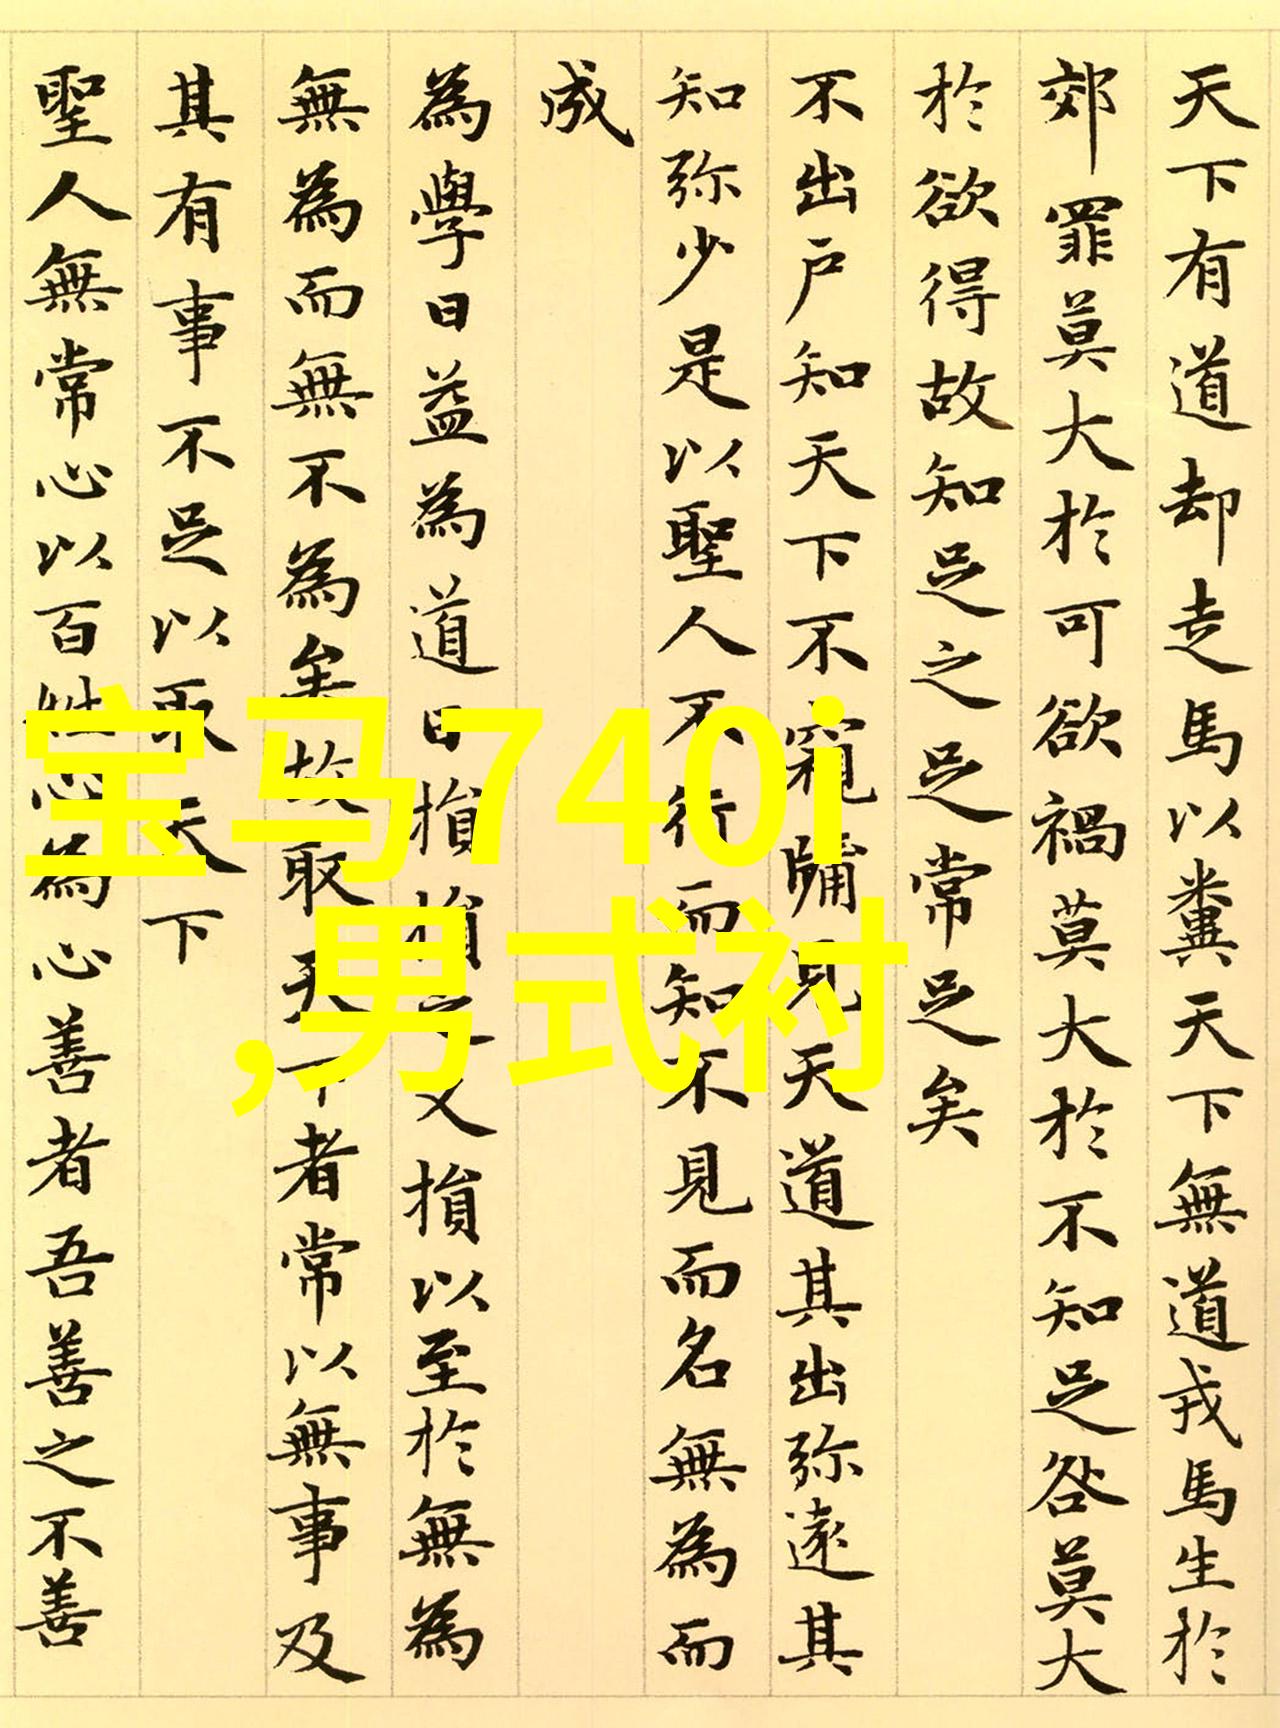 天下有道却走馬以糞天下無道戎馬生於
郊罪莫大於可欲禍莫大於不知足咎莫大
於欲得故知足之足常足矣
不出戶知天下不窺牖見天道其出弥遠其
知弥少是以聖人不行而知不見而名無為而
成
為學日益為道日損損之又損以至於無為
無為而無不為矣故取天下者常以無事及
其有事不足以取天下
聖人無常心以百姓心為心善者吾善之不善
宝马740i
,男式衬